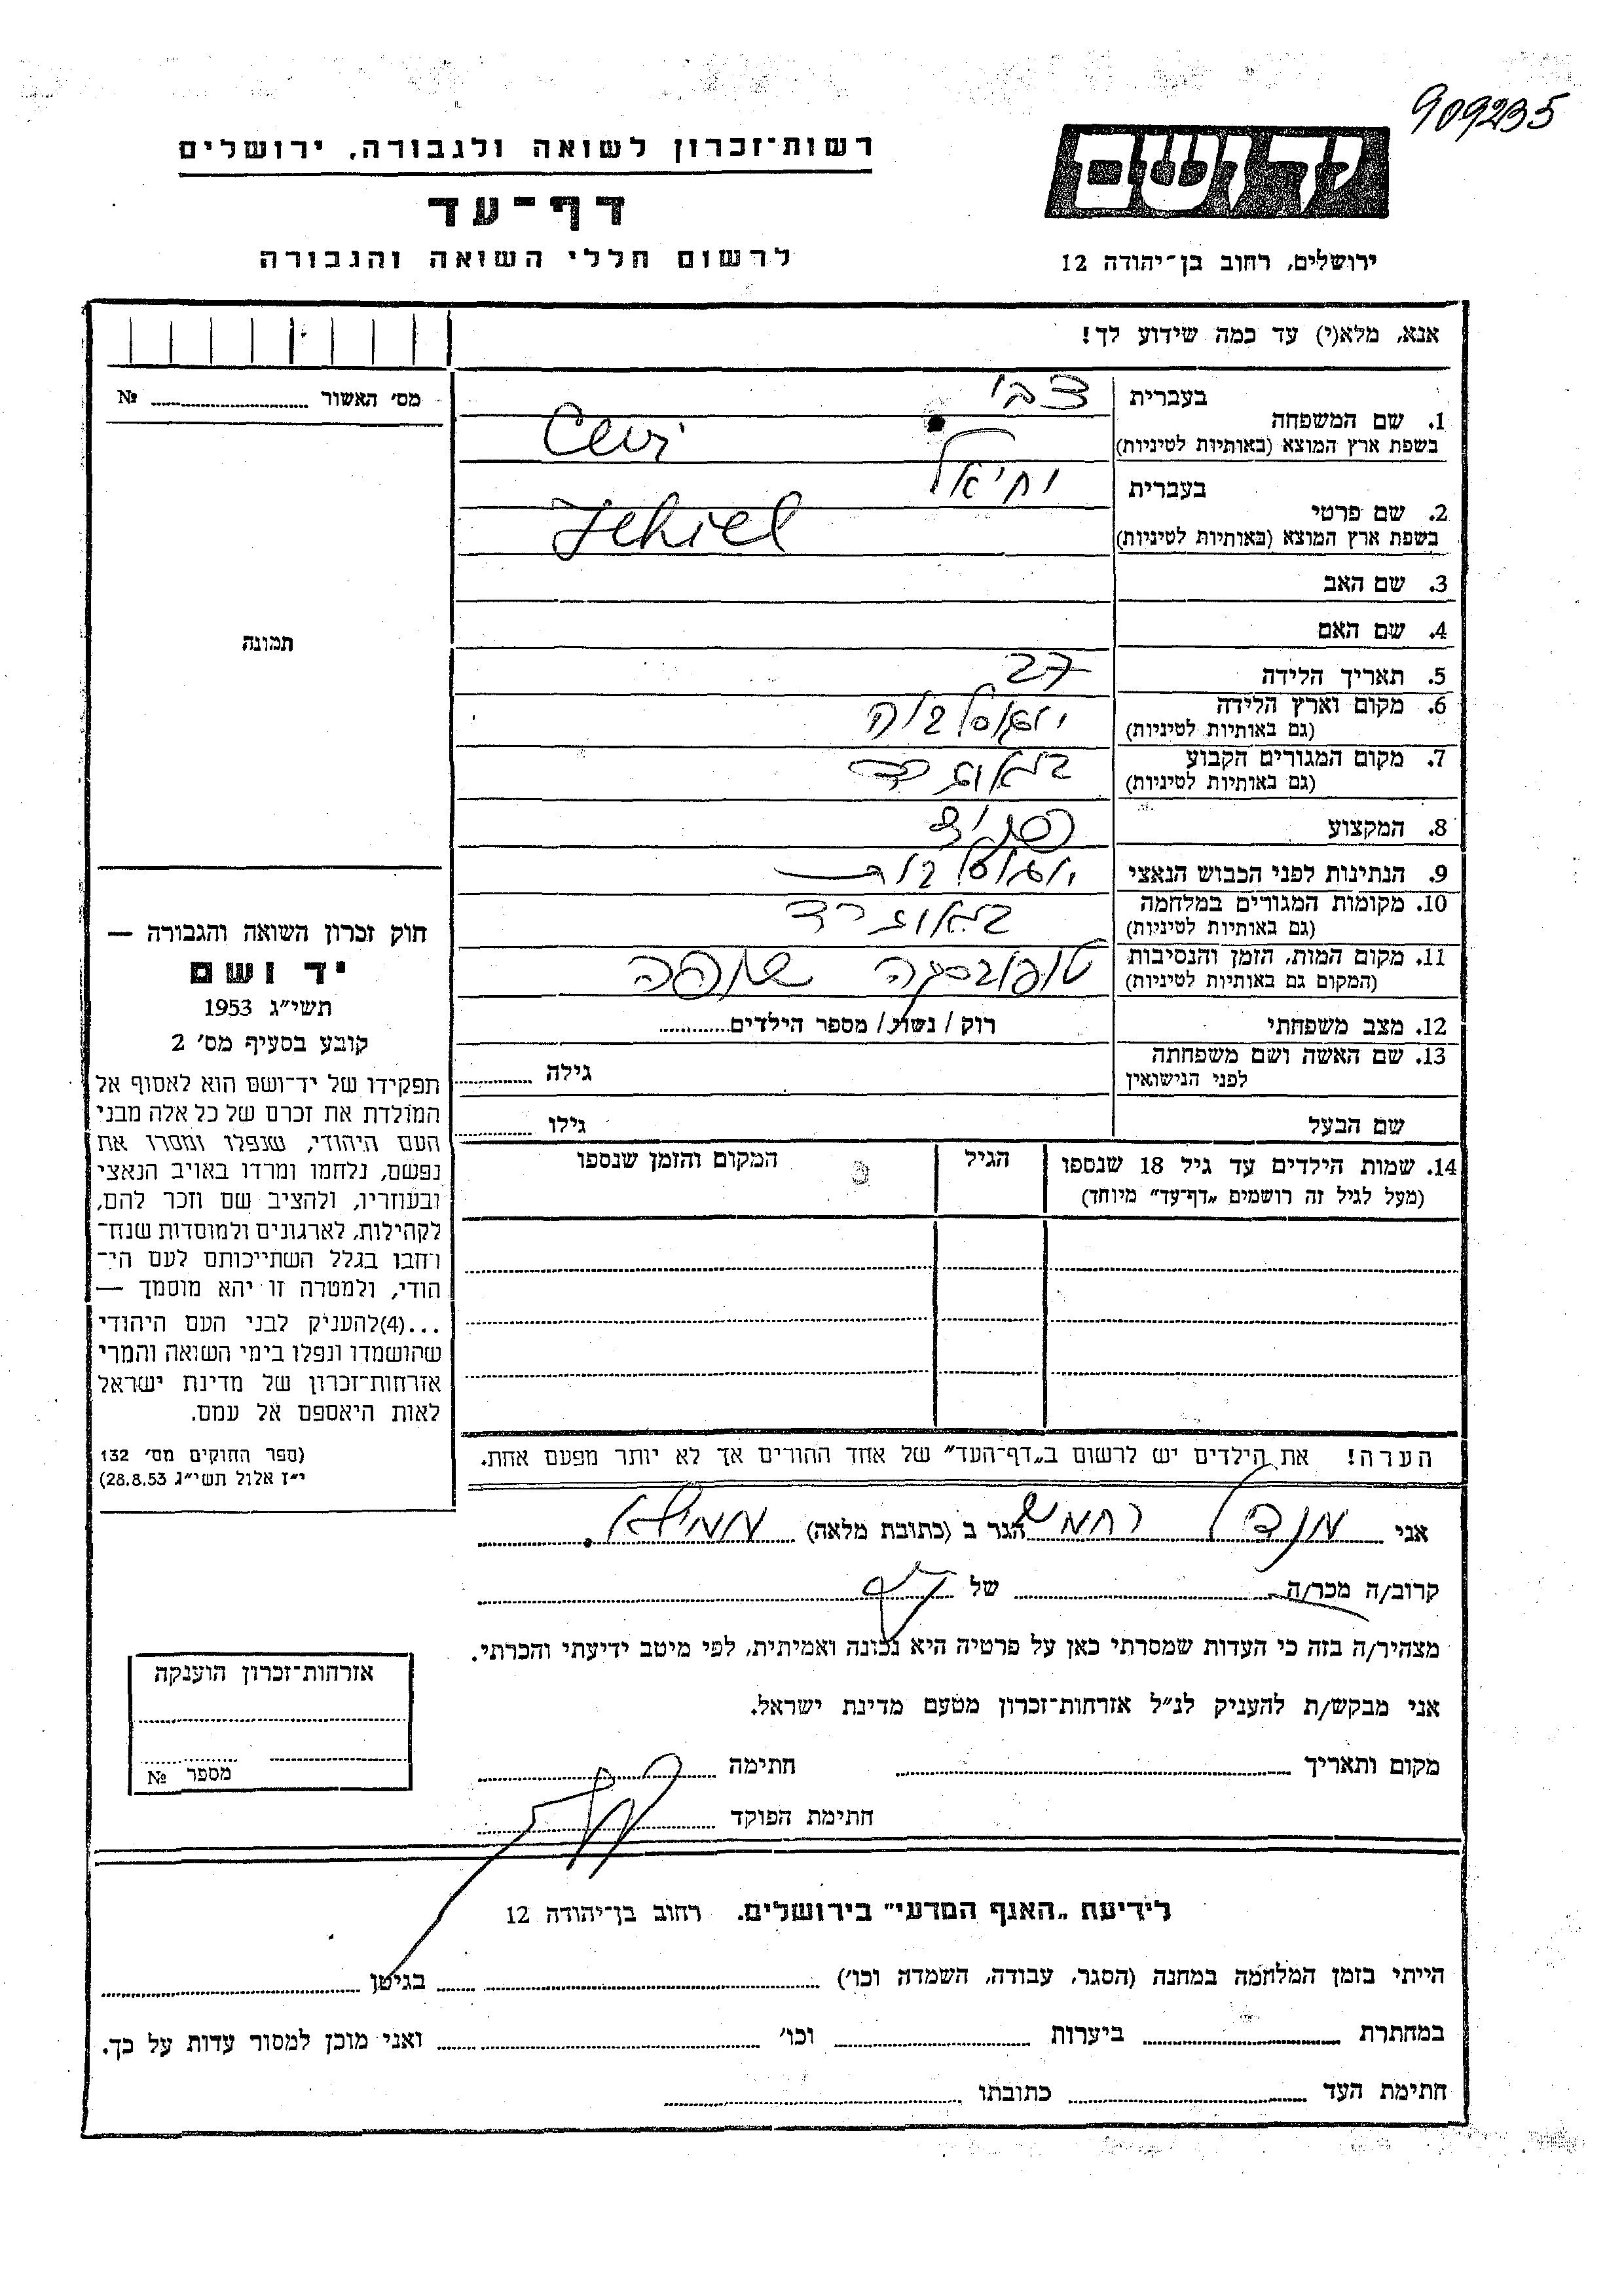 909235
יד ושם
רשות־זכרון לשואה ולגבורה, ירושלים
דף־עד
לרשום חללי השואה והגבורה
ירושלים, רחוב בן־יהודה 12
אנא, מלא(י) עד כמה שידוע לך!
מס׳ האשור № ........
1. שם המשפחה בעברית צבי
בשפת ארץ המוצא (באותיות לטיניות) Cevi
2. שם פרטי בעברית יחיאל
בשפת ארץ המוצא (באותיות לטיניות) Jehiel
3. שם האב
4. שם האם
תמונה
5. תאריך הלידה 27
6. מקום וארץ הלידה יוגוסלביה
(גם באותיות לטיניות)
7. מקום המגורים הקבוע בלאוגרד
(גם באותיות לטיניות)
8. המקצוע
9. הנתינות לפני הכבוש הנאצי
10. מקומות המגורים במלחמה בלאוגרד
(גם באותיות לטיניות)
11. מקום המות, הזמן והנסיבות טופובסקה שופה
(המקום גם באותיות לטיניות)
12. מצב משפחתי רוק / נשוי / מספר הילדים........
13. שם האשה ושם משפחתה גילה ........
לפני הנישואין
שם הבעל גילו ........
14. שמות הילדים עד גיל 18 שנספו הגיל המקום והזמן שנספו
(מעל לגיל זה רושמים „דף־עד״ מיוחד)
חוק זכרון השואה והגבורה —
יד ושם
תשי״ג 1953
קובע בסעיף מס׳ 2
תפקידו של יד־ושם הוא לאסוף אל
המולדת את זכרם של כל אלה מבני
העם היהודי, שנפלו ומסרו את
נפשם, נלחמו ומרדו באויב הנאצי
ובעוזריו, ולהציב שם וזכר להם,
לקהילות, לארגונים ולמוסדות שנח־
רחבו בגלל השתייכותם לעם הי־
הודי, ולמטרה זו יהא מוסמך —
...(4)להעניק לבני העם היהודי
שהושמדו ונפלו בימי השואה והמרי
אזרחות־זכרון של מדינת ישראל
לאות היאספם אל עמם.
(ספר החוקים מס׳ 132
י״ז אלול תשי״ג 28.8.53)
הערה! את הילדים יש לרשום ב„דף־העד״ של אחד ההורים אך לא יותר מפעם אחת.
אני מנדל הגר ב (כתובת מלאה)
קרוב/ה מכר/ה של
מצהיר/ה בזה כי העדות שמסרתי כאן על פרטיה היא נכונה ואמיתית, לפי מיטב ידיעתי והכרתי.
אני מבקש/ת להעניק לנ״ל אזרחות־זכרון מטעם מדינת ישראל.
מקום ותאריך ........ חתימה ........
חתימת הפוקד ........
אזרחות־זכרון הוענקה
מספר №
לידיעת „האגף המדעי״ בירושלים. רחוב בן־יהודה 12
הייתי בזמן המלחמה במחנה (הסגר, עבודה, השמדה וכו׳) ........ בגיטו ........
במחתרת ........ ביערות ........ וכו׳ ........ ואני מוכן למסור עדות על כך.
חתימת העד ........ כתובתו ........